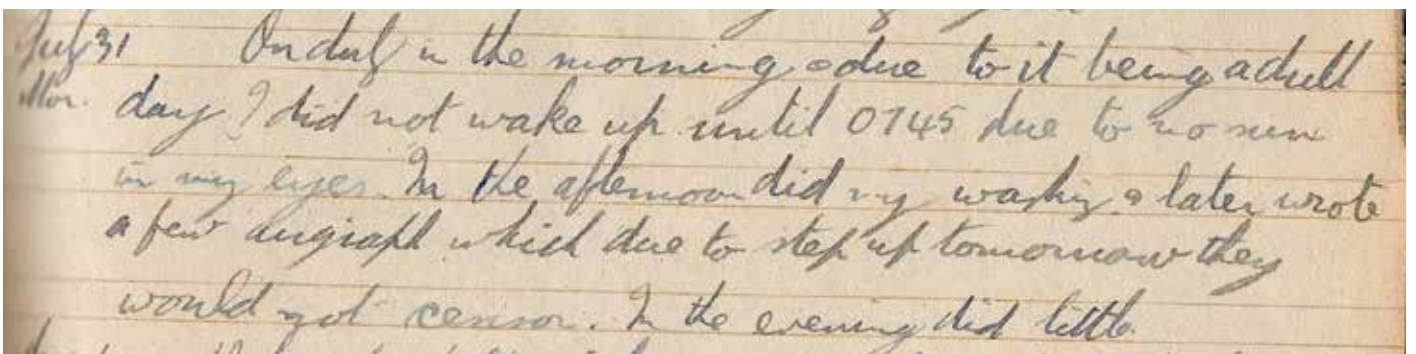 July 31 On duty in the morning & due to it being a dull
Mon. day I did not wake up until 0745 due to no sun
in my eyes. In the afternoon did my washing & later wrote
a few airgraph which due to step up tomorrow they
would not censor. In the evening did little.